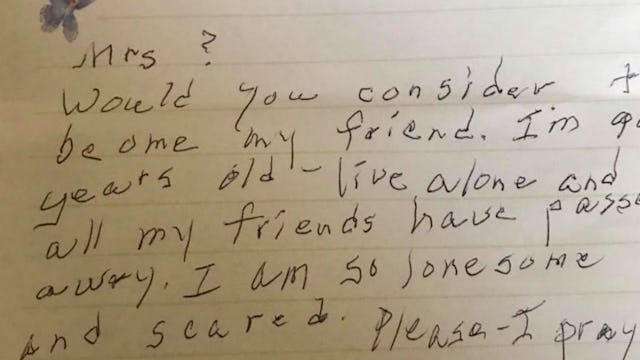 Mrs ?
Would you consider
become my friend. I'm
years old - live alone and
all my friends have passe
away. I am so lonesome
and scared. Please - I pray